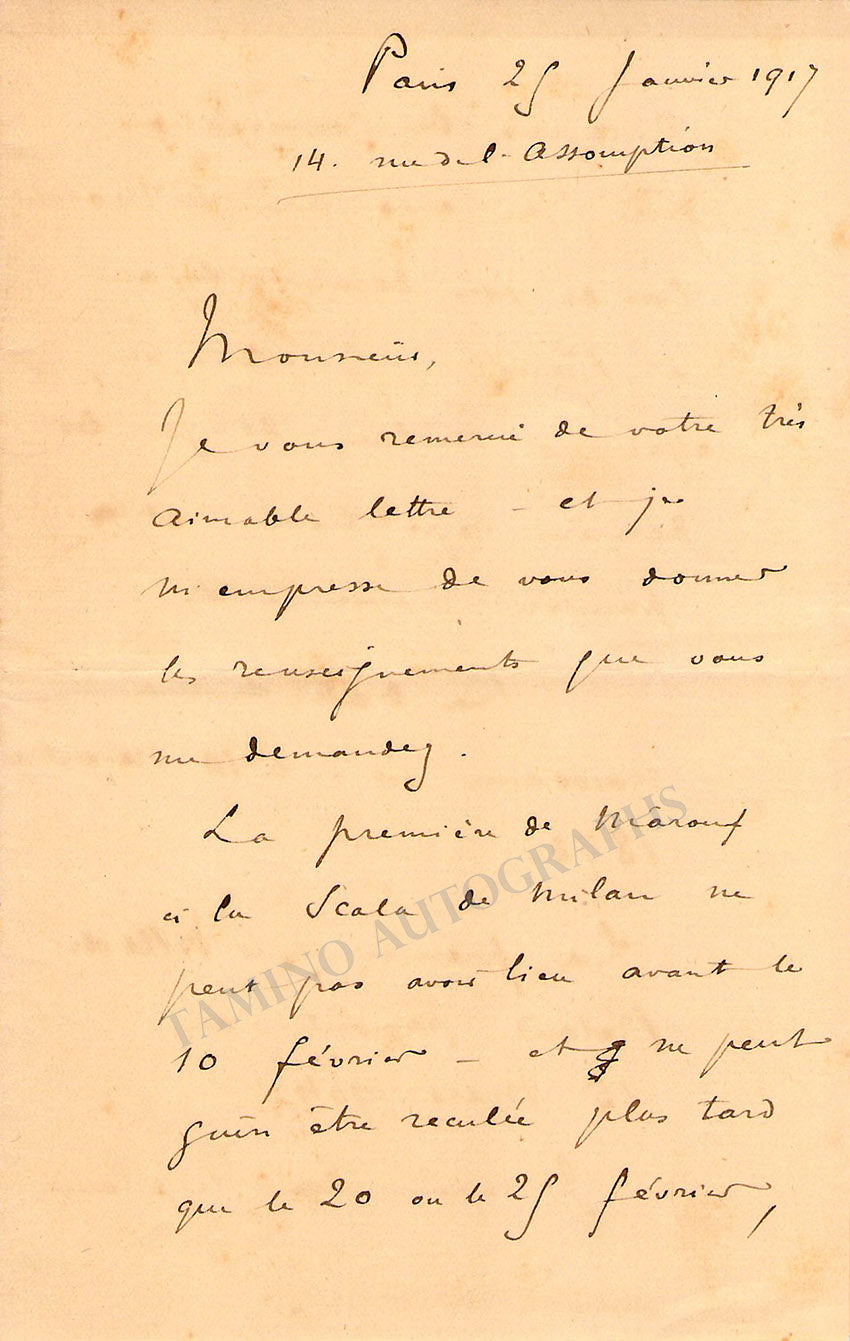 Paris 25 Janvier 1917
14. rue de l'Assomption
Monsieur,
Je vous remercie de votre très
aimable lettre – et je
m'empresse de vous donner
les renseignements que vous
me demandez.
La première de Mârouf
à la Scala de Milan ne
peut pas avoir lieu avant le
10 février – et ne peut
guère être reculée plus tard
que le 20 ou le 25 février,
TAMINO AUTOGRAPHS